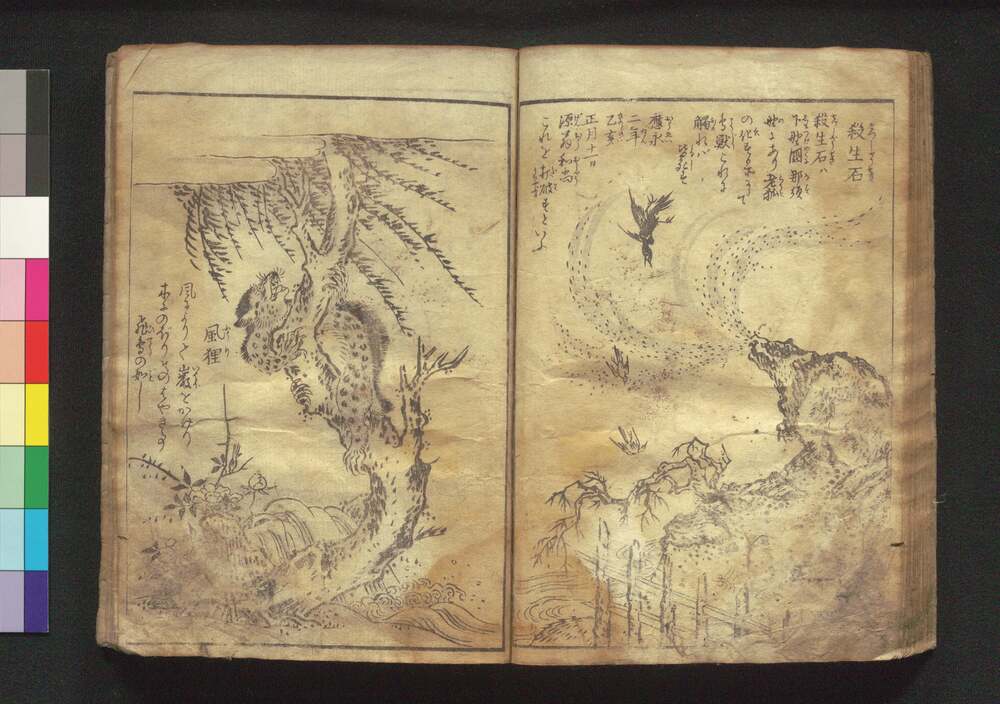 殺生石
殺生石ハ
下野國那須
野にあり老狐
の化する所にして
鳥獣これに
觸れバ皆死す
應永
二年
乙亥
正月十一日
源翁和尚
これを打破すといふ
風狸
風によりて巌をかけり
木にのぼりそのはやき事
飛鳥の如し